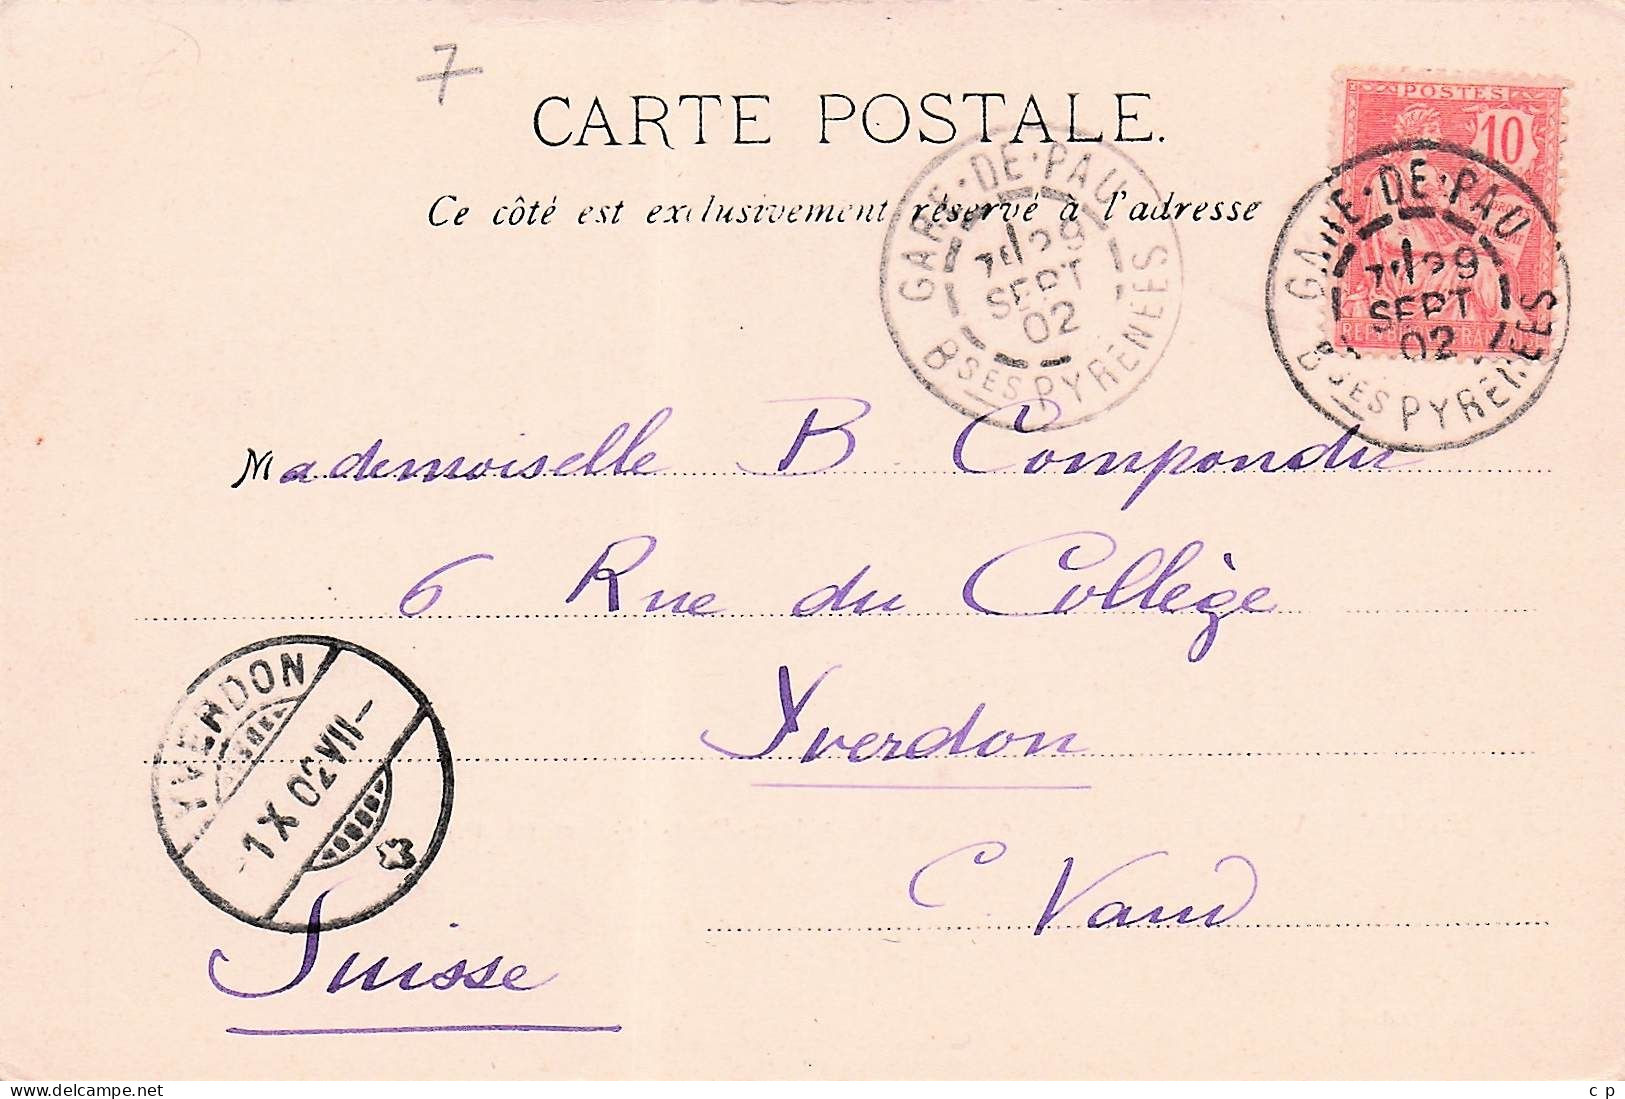 7
CARTE POSTALE.
Ce côté est exclusivement réservé à l'adresse
POSTES
10
GARE·DE·PAU
29
SEPT
02
BSES PYRÉNÉES
GARE·DE·PAU
29
SEPT
02
BSES PYRÉNÉES
Mademoiselle B. Compondu
6 Rue du Collège
YVERDON
1 X 02 VII–
Yverdon
C. Vaud
Suisse
www.delcampe.net
c p